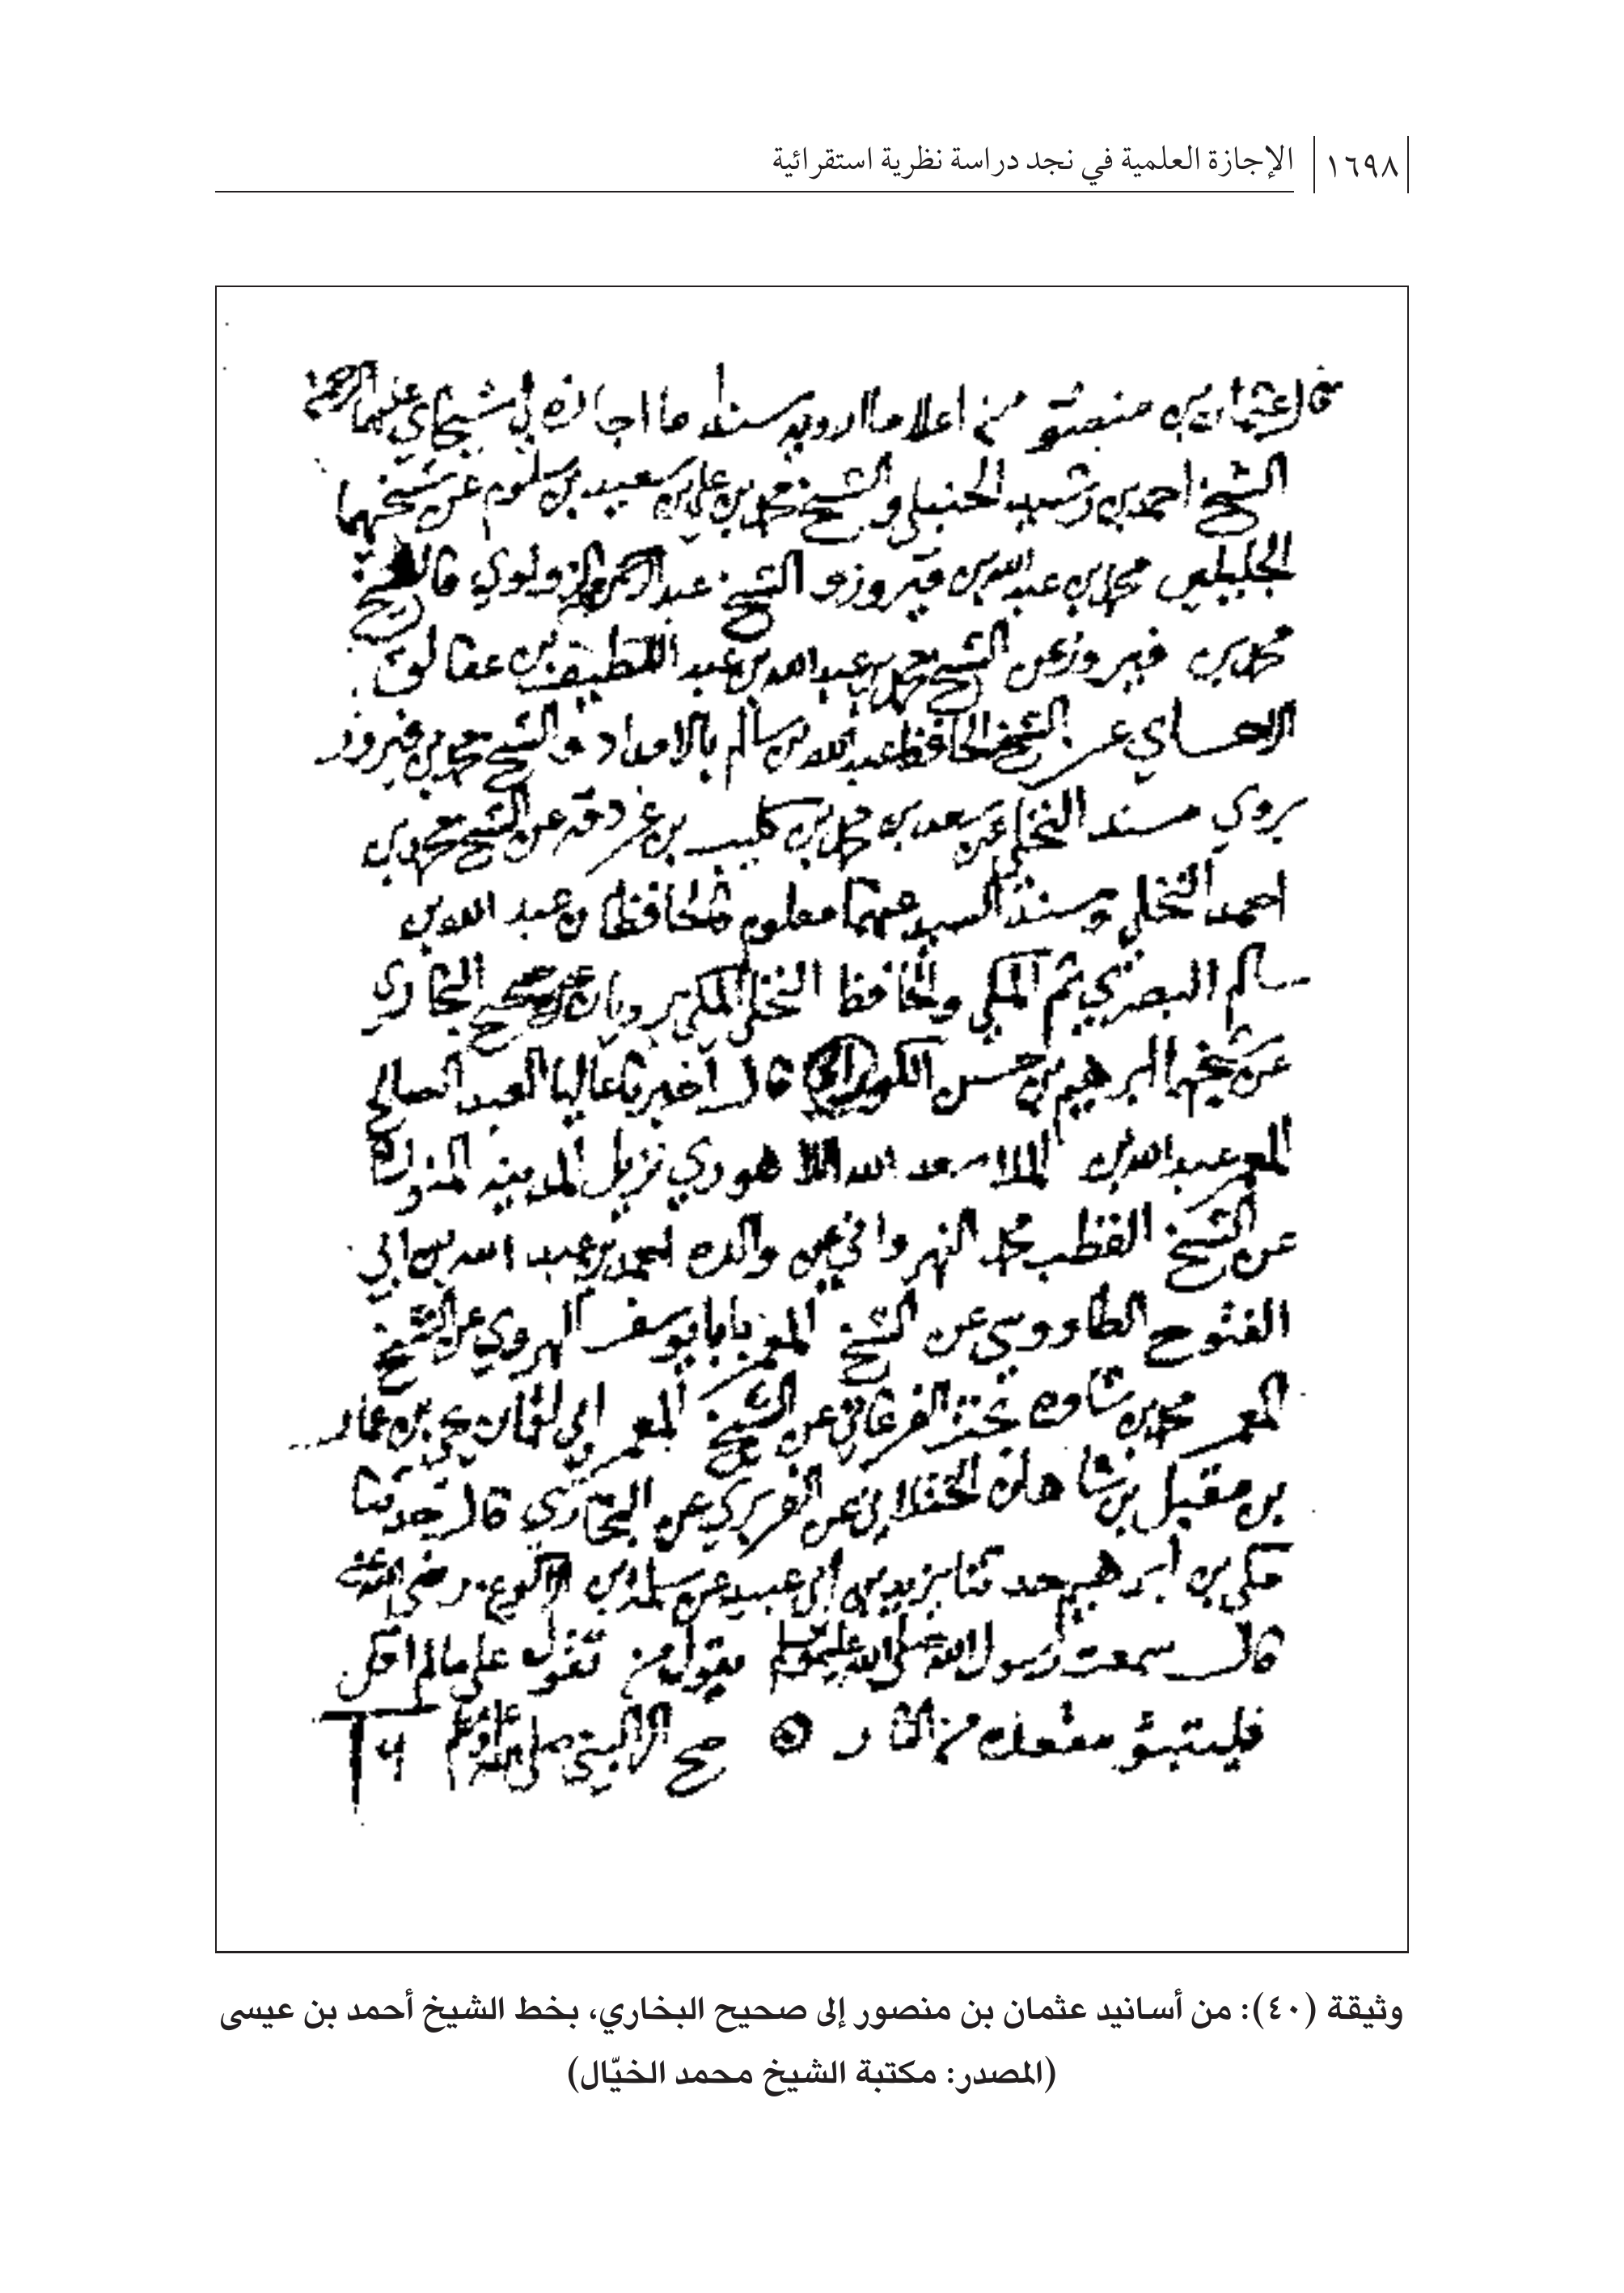 ١٦٩٨ الإجازة العلمية في نجد دراسة نظرية استقرائية
قال عثمان بن منصور من اعلا ما ارويه سندا ما اجازه لي شيخاي عليهما الرحمة
الشيخ احمد بن رشيد الحنبلي والشيخ محمد بن علي بن سعيد بن سلوم عن شيخهما
الجليلين محمد بن عبد الله بن فيروز والشيخ عبد الرحمن الزواوي قال الشيخ
محمد بن فيروز عن الشيخ محمد بن عبد الله بن عبد اللطيف بن عفالق
الاحسائي عن الشيخ الحافظ عبد الله بن سالم بالامداد والشيخ محمد بن فيروز
يروي مسند النخلي عن سعد بن محمد بن كليب بن غردقه عن الشيخ محمد بن
احمد النخلي وسند السيد عنهما معلوم فالحافظان عبد الله بن
سالم البصري ثم المكي والحافظ النخلي المكي يرويان صحيح البخاري
عن شيخهما ابرهيم بن حسن الكوراني قال اخبرنا عاليا العبد الصالح
المعمر عبد الله بن الملا سعد الله اللاهوري نزيل المدينة المنوره
عن الشيخ القطب محمد النهرواني عن والده احمد بن عبد الله بن ابي
الفتوح الطاووسي عن الشيخ المعمر بابا يوسف الهروي عن الشيخ
المعمر محمد بن شاذ بخت الفرغاني عن الشيخ المعمر ابي لقمان يحيى بن عمار
بن مقبل بن شاهان الختلاني عن الفربري عن البخاري قال حدثنا
مكي بن ابرهيم حدثنا يزيد بن ابي عبيد عن سلمة بن الاكوع رضي الله عنه
قال سمعت رسول الله صلى الله عليه وسلم يقول من تقول علي مالم اقل
فليتبوؤ مقعده من النار صح الى النبي صلى الله عليه وسلم
وثيقة (٤٠): من أسانيد عثمان بن منصور إلى صحيح البخاري، بخط الشيخ أحمد بن عيسى
(المصدر: مكتبة الشيخ محمد الخيّال)